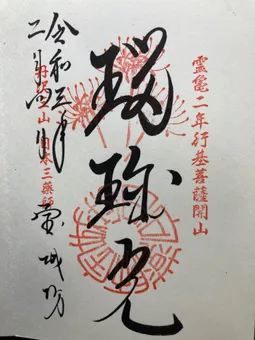 霊亀二年行基菩薩開山
瑠璃光
令和三年
二月四日
日本三薬師
城坊